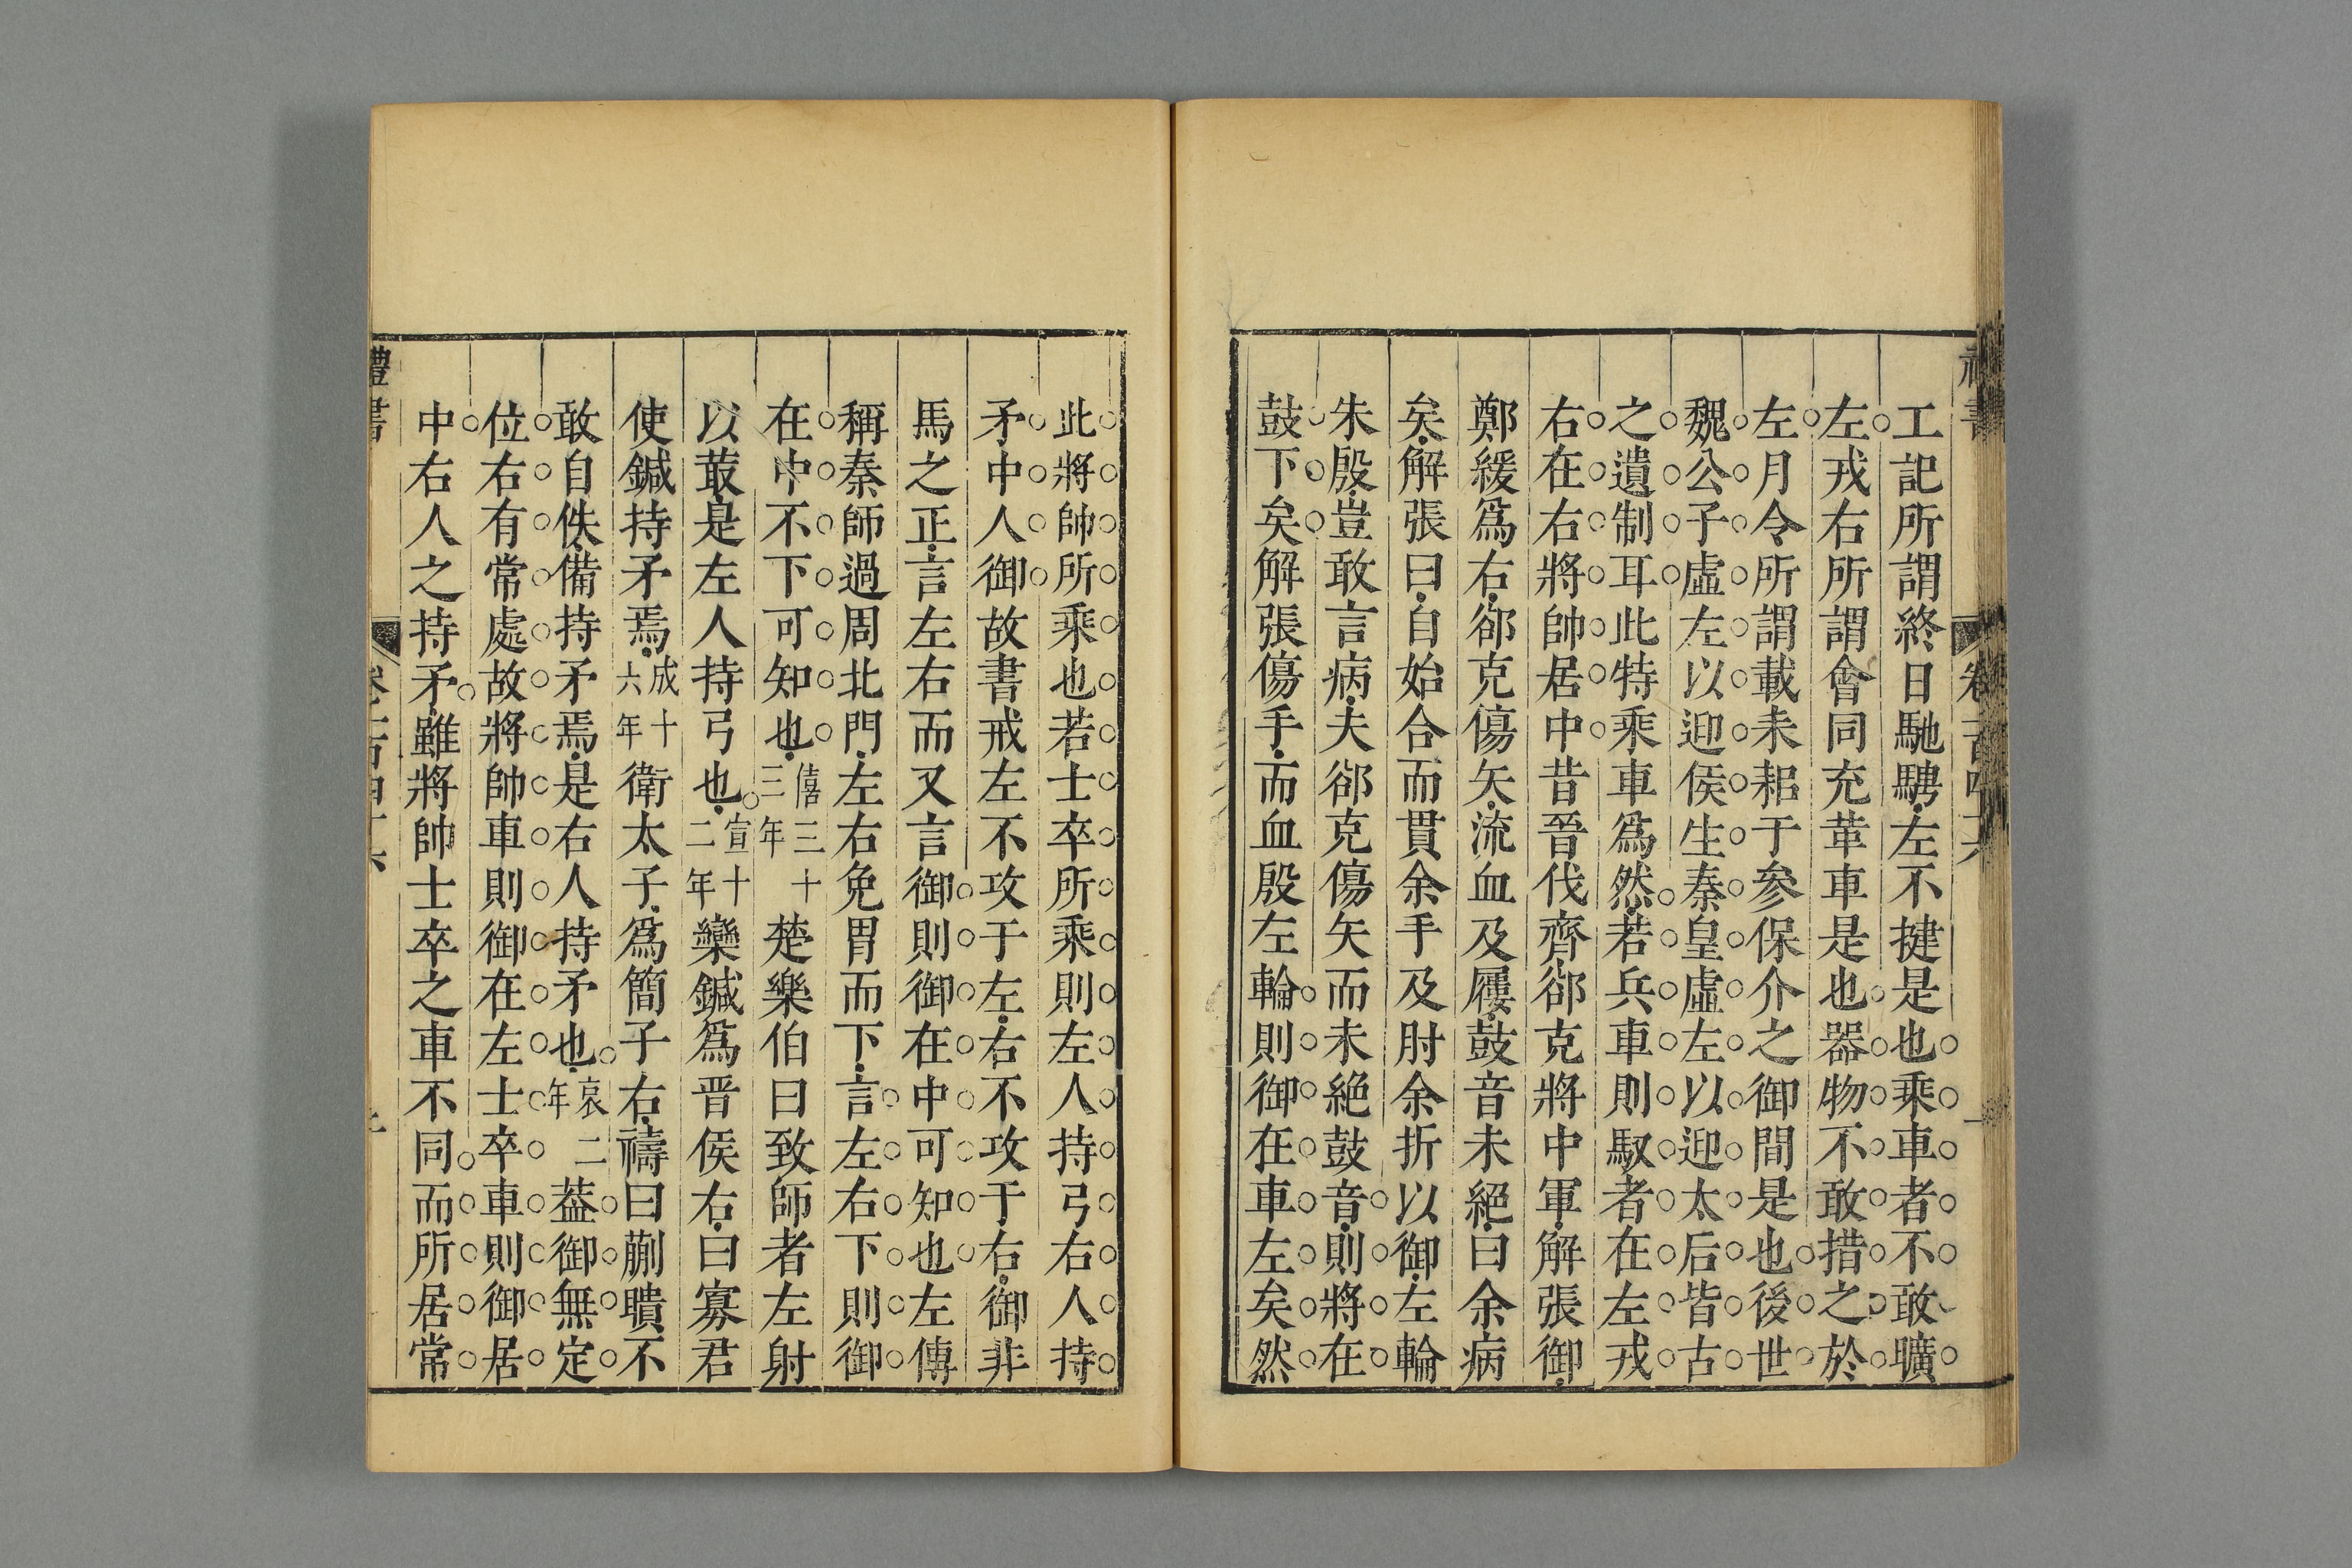 工記所謂終日馳騁左不揵是也乘車者不敢曠
左戎右所謂會同充革車是也器物不敢措之於
左月令所謂載耒耜于參保介之御間是也後世
魏公子虛左以迎侯生秦皇虛左以迎太后皆古
之遺制耳此特乘車爲然若兵車則馭者在左戎
右在右將帥居中昔晉伐齊郤克將中軍解張御
鄭緩爲右郤克傷矢流血及屨鼓音未絕曰余病
矣解張曰自始合而貫余手及肘余折以御左輪
朱殷豈敢言病夫郤克傷矢而未絕鼓音則將在
鼓下矣解張傷手而血殷左輪則御在車左矣然
此將帥所乘也若士卒所乘則左人持弓右人持
矛中人御故書戒左不攻于左右不攻于右御非
馬之正言左右而又言御則御在中可知也左傳
稱秦師過周北門左右免胄而下言左右下則御
在中不下可知也僖三十三年楚樂伯曰致師者左射
以菆是左人持弓也宣十二年欒鍼爲晉侯右曰寡君
使鍼持矛焉成十六年衛太子爲簡子右禱曰蒯聵不
敢自佚備持矛焉是右人持矛也哀二年蓋御無定
位右有常處故將帥車則御在左士卒車則御居
中右人之持矛雖將帥士卒之車不同而所居常
禮書